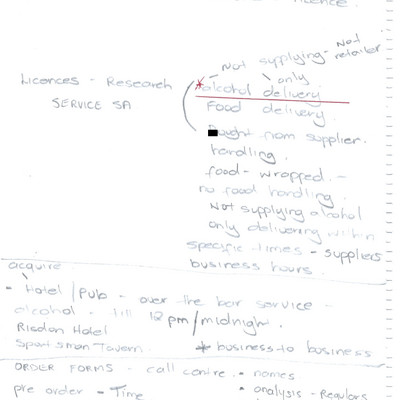 licence.
Not supplying - Not retailer
only
Licences - Research
SERVICE SA
*alcohol delivery
Food delivery.
Bought from supplier.
handling.
food - wrapped. -
no food handling.
Not supplying alcohol
only delivering within
specific times - suppliers
business hours.
acquire
• Hotel / Pub - over the bar service -
alcohol - till 12pm/midnight.
Risdon Hotel
Sportsman Tavern.
* business to business
ORDER FORMS - call centre.
• names
pre order - Time
• analysis - Regulars